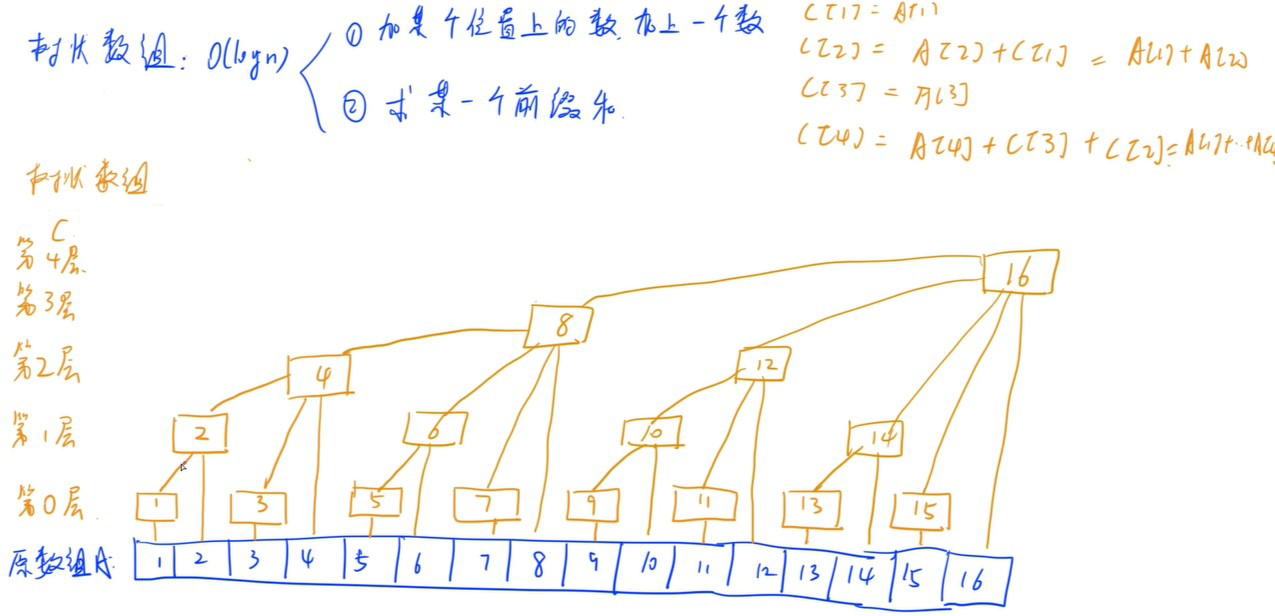 树状数组: O(logn)
① 加某个位置上的数, 加上一个数
② 求某一个前缀和.
C[1] = A[1]
C[2] = A[2]+C[1] = A[1]+A[2]
C[3] = A[3]
C[4] = A[4]+C[3]+C[2]=A[1]+..+A[4
树状数组
C
第4层
第3层
第2层
第1层
第0层
16
8
12
4
2
6
10
14
1 3 5 7 9 11 13 15
原数组A: 1 2 3 4 5 6 7 8 9 10 11 12 13 14 15 16